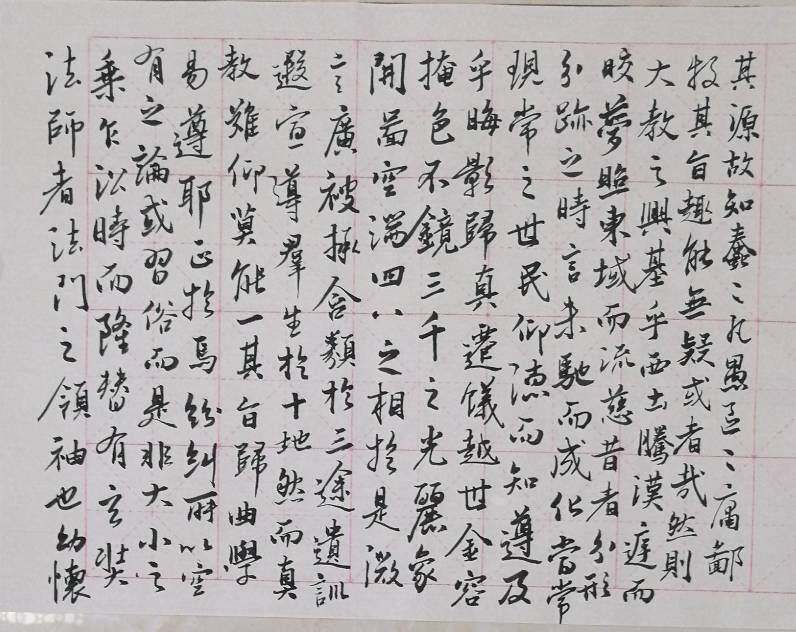 其源故知蠢々凡愚區々庸鄙
投其旨趣能無疑或者哉然則
大教之興基乎西土騰漢庭而
皎夢照東域而流慈昔者分形
分跡之時言未馳而成化當常
現常之世民仰德而知遵及
乎晦影歸真遷儀越世金容
掩色不鏡三千之光麗象
開圖空端四八之相於是微
言廣被拯含類於三途遺訓
遐宣導羣生於十地然而真
教難仰莫能一其旨歸曲學
易遵耶正於焉紛糾所以空
有之論或習俗而是非大小之
乘乍沿時而隆替有玄奘
法師者法門之領袖也幼懷